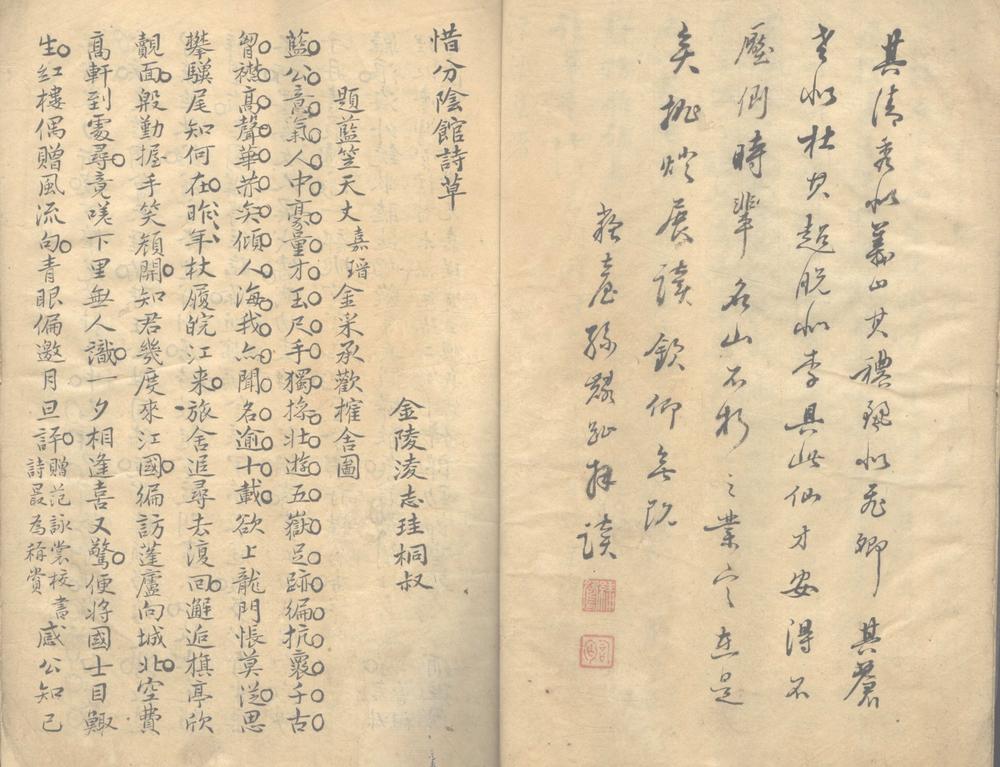 其清秀似義山其禮艷似飛卿其蒼
老似杜其超脫似李具此仙才安得不
壓倒時輩名山不朽之業定在是
矣挑燈展讀欽仰無既
拜讀
惜分陰館詩草
金陵淩志珪桐叔
題藍笠天丈嘉瑨金采承歡榷舍圖
藍公意氣人中豪量才玉尺手獨操壯遊五嶽足跡編抗褱千古
胷襟高聲華菾矣傾人海我亦聞名逾十載欲上龍門悵莫從思
攀驥尾知何在昨年杖履皖江来旅舍追尋去復回邂逅旗亭欣
覿面殷勤握手笑顏開知君幾度來江國編訪蓬廬向城北空費
高軒到處尋竟嗟下里無人識一夕相逢喜又驚便將國士目鯫
生紅樓偶贈風流句青眼偏邀月旦評贈范詠裳校書詩最為稱賞感公知己